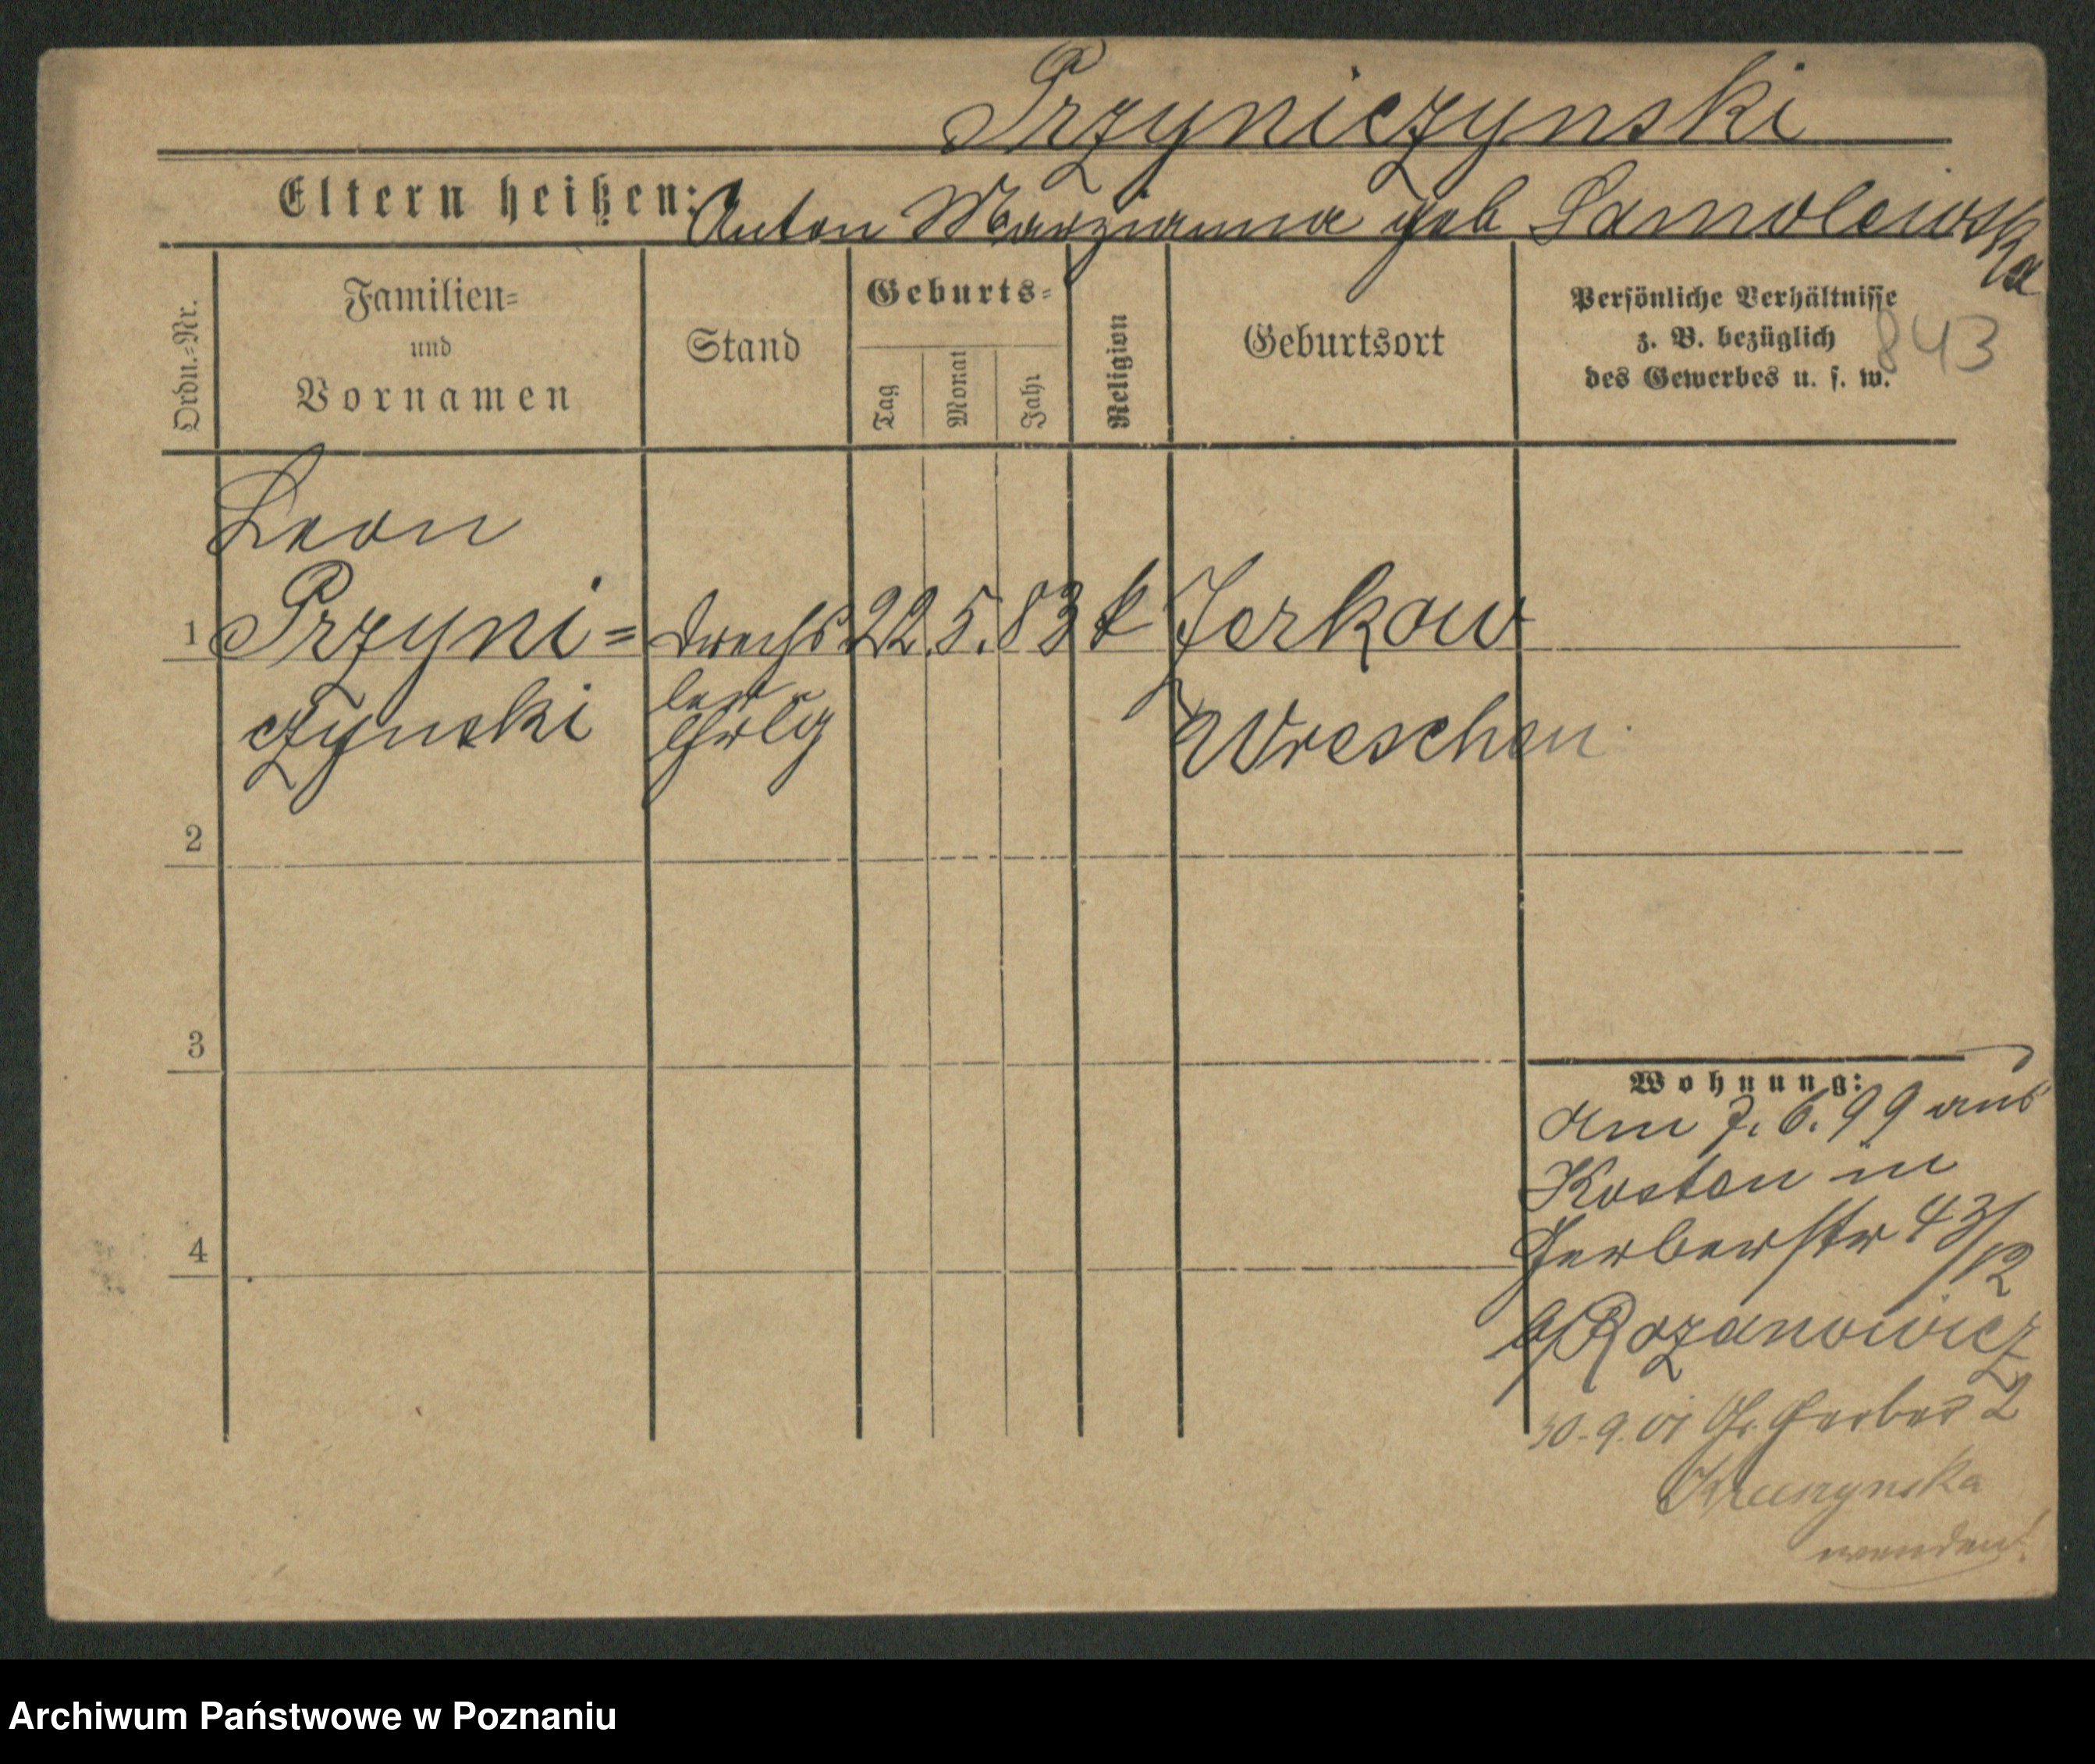 Przyniczynski
Eltern heißen: Anton Marzianna geb Samolewska
Ordn.=Nr.
Familien=
und
Vornamen
Stand
Geburts=
Tag
Monat
Jahr
Religion
Geburtsort
Persönliche Verhältnisse
z. B. bezüglich
des Gewerbes u. s. w.
843
Leon
1 Przyni= Drechs 22. 5. 83 k Jerkow
czynski ler Wreschen
2
3
Wohnung:
Am 7. 6. 99 aus
Kosten in
Gerberstr 43/12
4
b/Rozanowicz
30.9.01 Gr. Gerber 2
wenden!
Archiwum Państwowe w Poznaniu